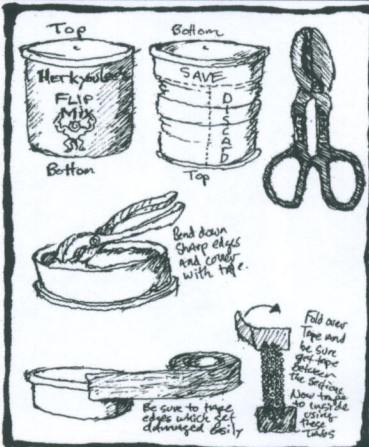 Top
Herkyoules
FLIP
MIX
Bottom
Bottom
SAVE
DISCARD
Top
Bend down
sharp edges
and cover
with tape.
Be sure to tape
edges which get
damaged easily
Fold over
Tape and
be sure
get tape
between
The Sections
Now tape
to inside
using
these
Tabs